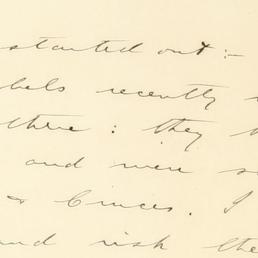 started out :-
bels recently
there : they
and were s
& Cruces. I
and risk the